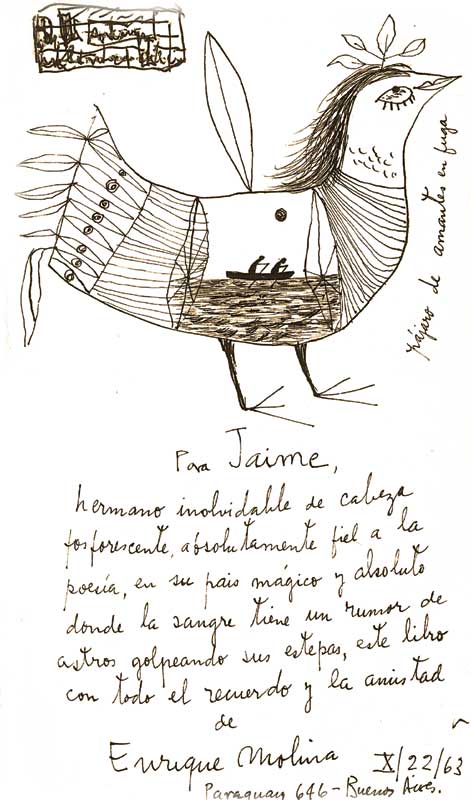 pájaro de amantes en fuga
Para Jaime,
hermano inolvidable de cabeza
fosforescente, absolutamente fiel a la
poesía, en su pais mágico y absoluto
donde la sangre tiene un rumor de
astros golpeando sus estepas, este libro
con todo el recuerdo y la amistad
de
Enrique Molina
X/22/63
Paraguay 646 - Buenos Aires.